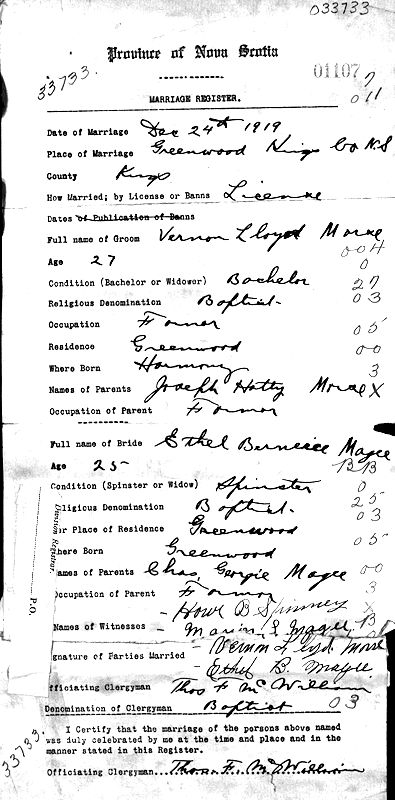 033733
Province of Nova Scotia
33733.
01107
7
011
MARRIAGE REGISTER.
Date of Marriage Dec 24th 1919
Place of Marriage Greenwood Kings Co N.S
County Kings
How Married; by License or Banns License
Dates of Publication of Banns
Full name of Groom Vernon Lloyd Morse
004
Age 27
0
Condition (Bachelor or Widower) Bachelor 27
Religious Denomination Baptist. 03
Occupation Farmer 05
Residence Greenwood 00
Where Born Harmony 3
Names of Parents Joseph Hatty Morse X
Occupation of Parent Farmer
Full name of Bride Ethel Berniece Magee
Age 25 BB
Condition (Spinster or Widow) Spinster 0
eligious Denomination Baptist. 25
03
er Place of Residence Greenwood
05
here Born Greenwood
ames of Parents Chas, Georgie Magee 00
ccupation of Parent Farmer 3
- Howe B Spinney X
Names of Witnesses - Marion L Magee B
- Vernon Lloyd Morse
ignature of Parties Married
- Ethel B. Magee.
fficiating Clergyman Thos F McWilliam
Denomination of Clergyman Baptist 03
I Certify that the marriage of the persons above named
was duly celebrated by me at the time and place and in
the manner stated in this Register.
Officiating Clergyman... Thos. F. McWilliam
33733.
Division Registrar.
P.O.